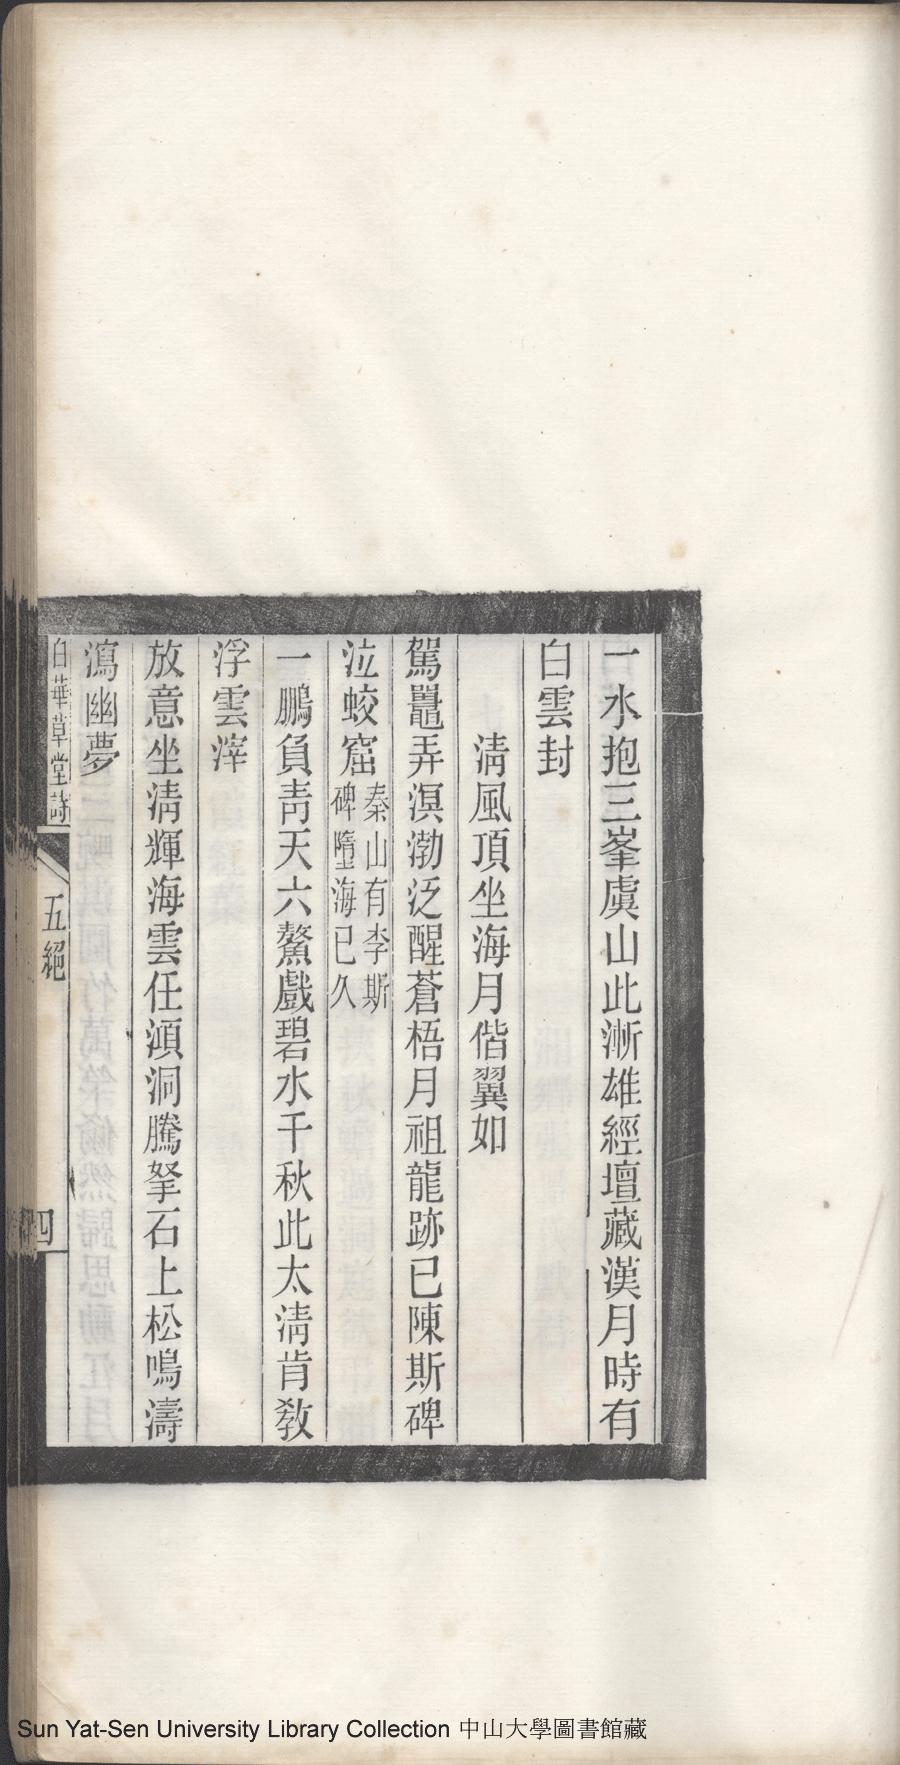 一水抱三峯虞山此漸雄經壇藏漢月時有
白雲封
清風頂坐海月偕翼如
駕鼉弄溟渤泛醒蒼梧月祖龍跡已陳斯碑
泣蛟窟秦山有李斯
碑墮海已久
一鵬負青天六鰲戲碧水千秋此太清肯敎
浮雲滓
放意坐清輝海雲任澒洞騰拏石上松鳴濤
瀉幽夢
白華草堂詩
五絕
四
Sun Yat-Sen University Library Collection 中山大學圖書館藏